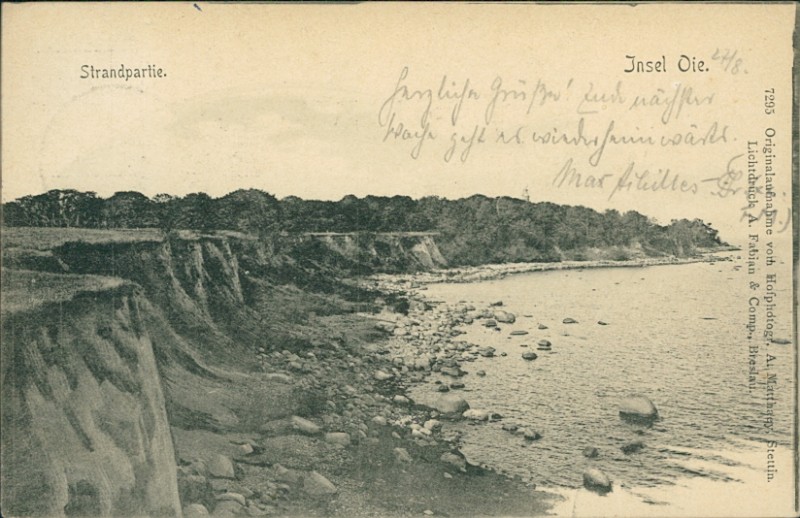 Strandpartie.
Insel Oie.
27/8.
Herzliche Grüße! Ende nächster
Woche geht es wieder heimwärts.
Max Achilles
7295 Originalaufnahme vom Hofphotogr. A. Matthaey, Stettin.
Lichtdruck A. Fabian & Comp., Breslau.